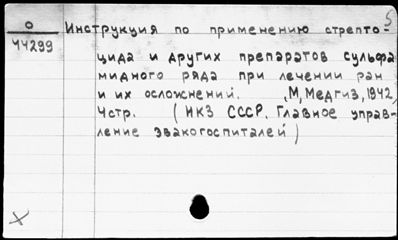 5
О Инструкция по применению стрепто-
44299
цида и других препаратов сульфа
мидного ряда при лечении ран
и их осложнений. ,М,Медгиз,1942,
4стр. (НКЗ СССР. Главное управ-
ление эвакогоспиталей)